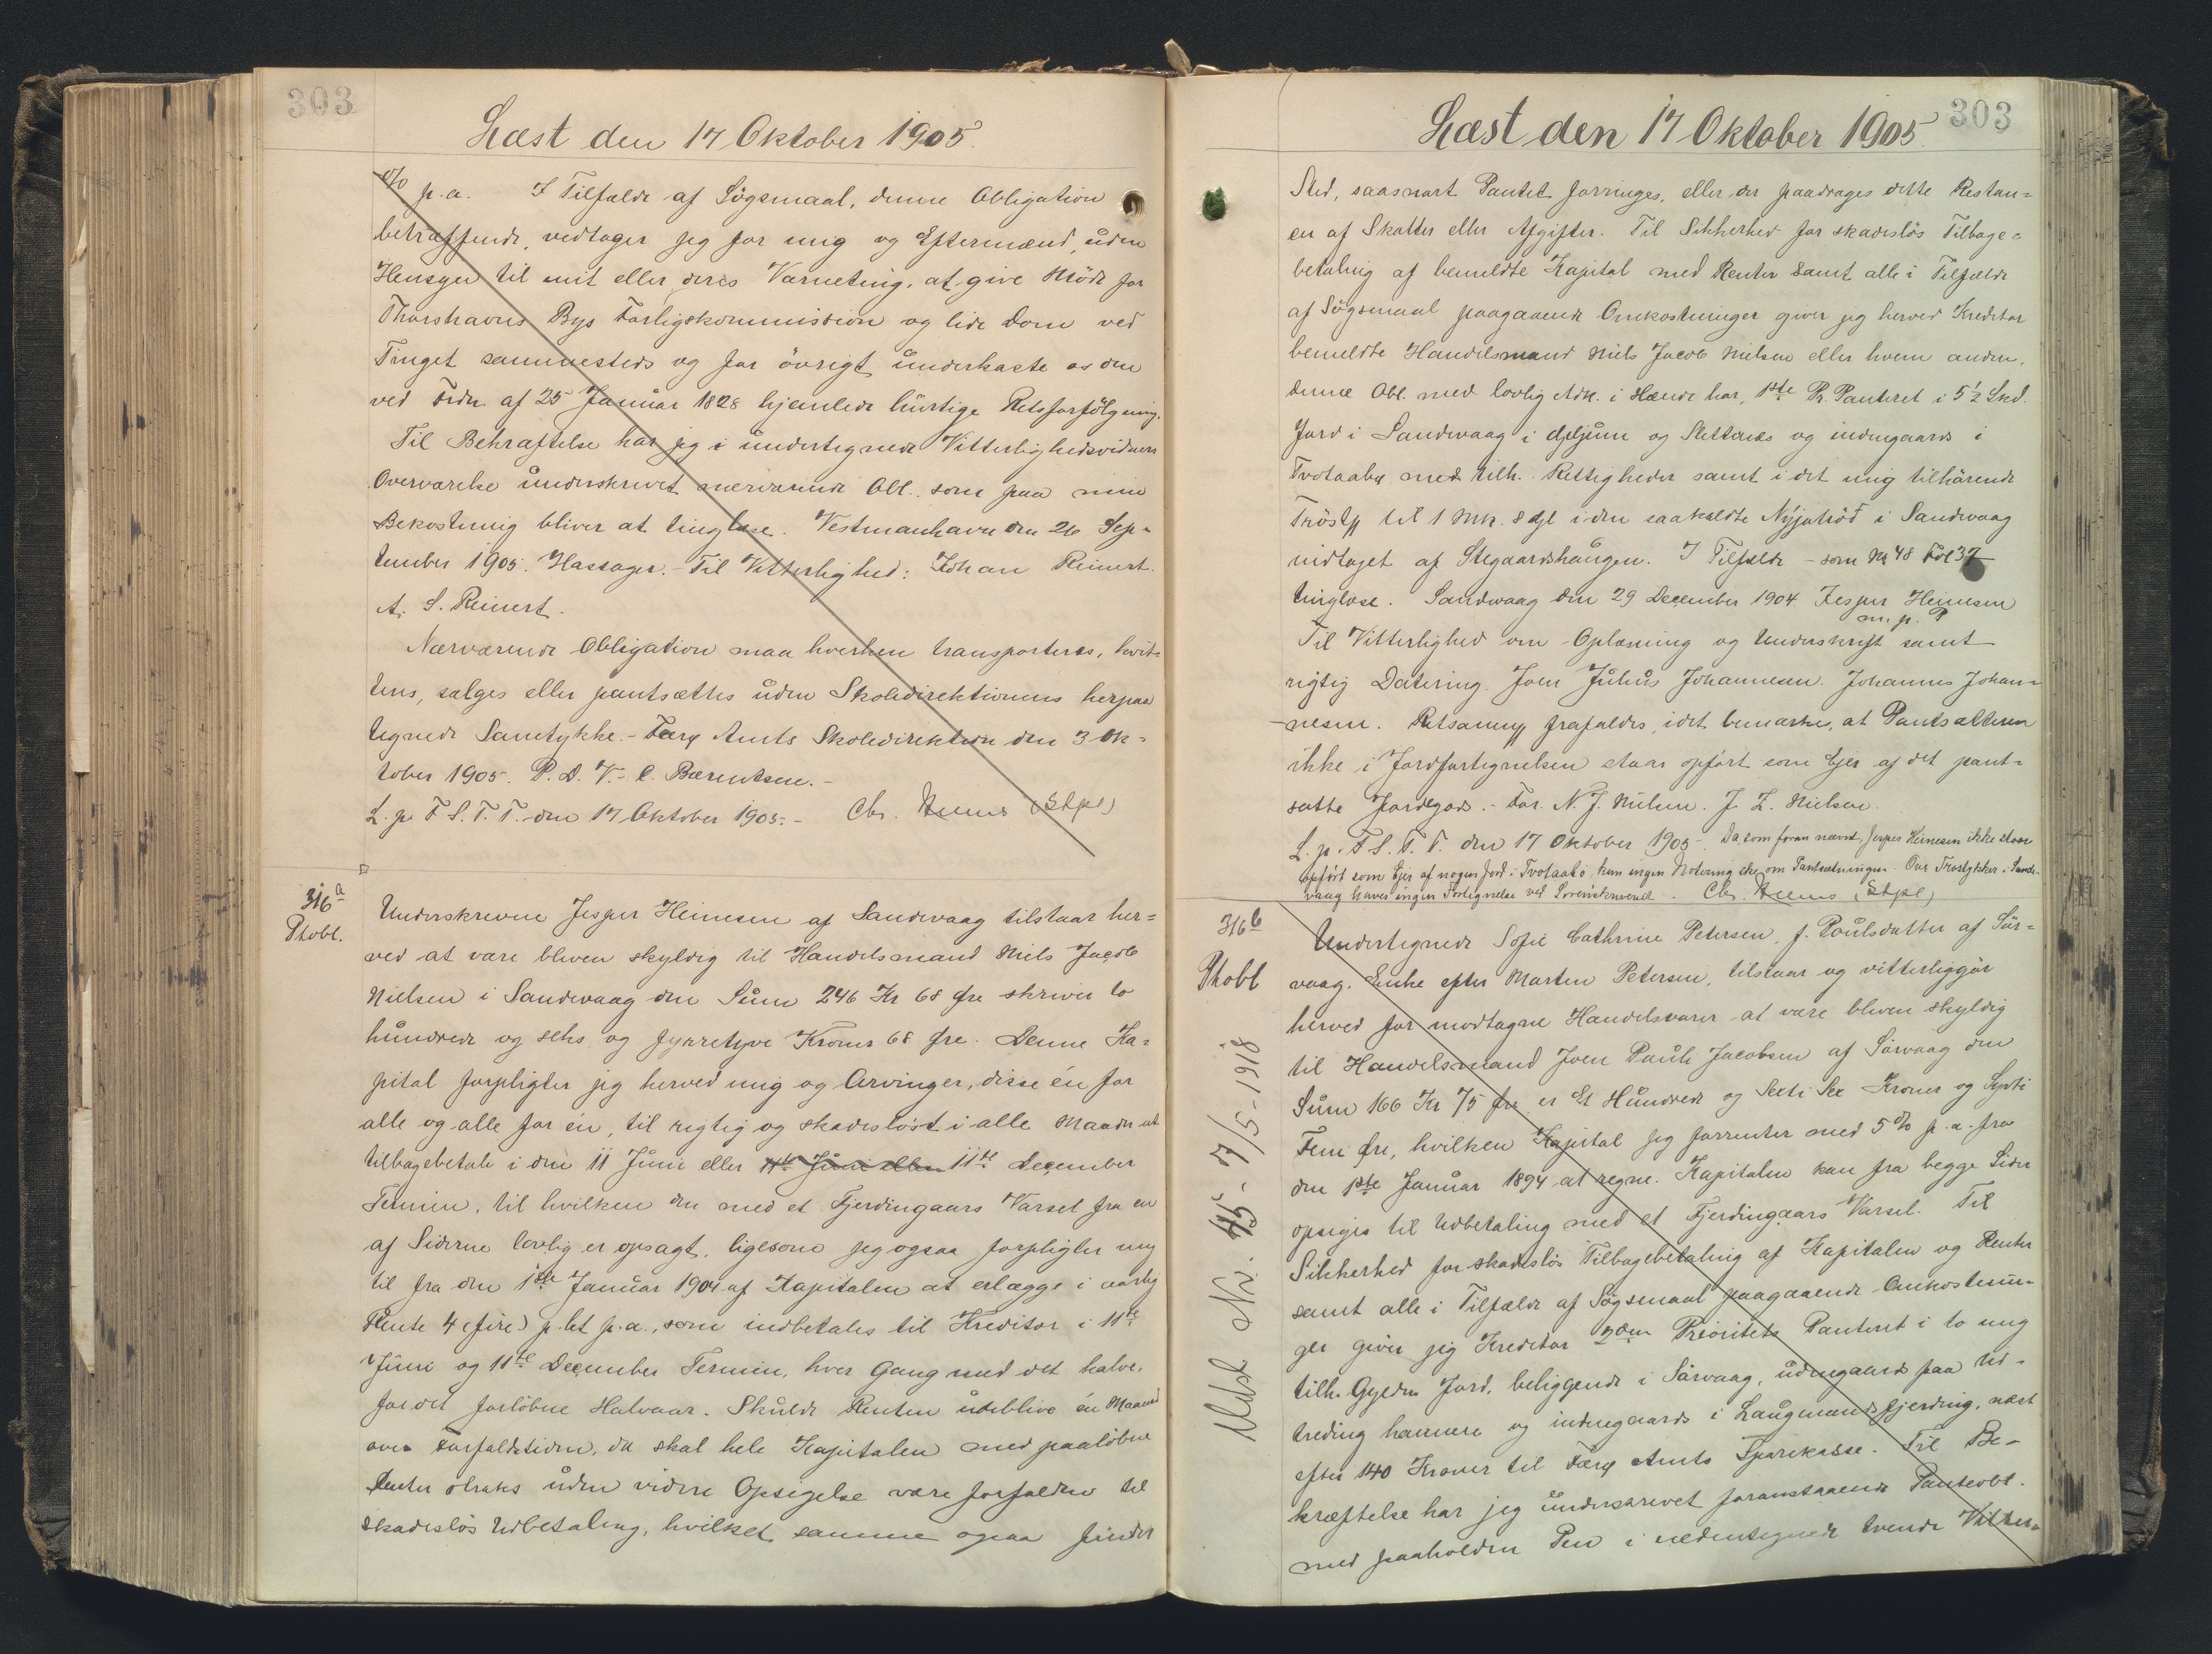 303
Læst den 17 Oktober 1905.
% p.a. I Tilfælde af Sögsmaal, denne Obligation
betræffende, vedtager jeg for mig og Eftermænd, uden
Hensyn til mit eller deres Værneting, at give Möde for
Thorshavns Bys Forligskommission og lide Dom ved
Tinget sammesteds og for övrigt underkaste os den
ved Frdn. af 25 Januar 1828 hjemlede hurtige Retsforfölgning.
Til Bekræftelse har jeg i undertegnede Vitterlighedsvidners
Overværelse underskrevet nærværende Obl., som paa min
Bekostning bliver at tinglæse. Vestmanhavn den 26 Sep-
tember 1905. Hassager. - Til Vitterlighed: Johan Reinert.
A. S. Reinert.
Nærværende Obligation maa hverken transporteres, kvit-
teres, sælges eller pantsættes uden Skoledirektionens herpaa
tegnede Samtykke. - Færø Amts Skoledirektion den 3 Ok-
tober 1905. P. D. V. - C. Bærentsen. -
L. p. F. S. T. T. den 17 Oktober 1905. - Chr. (Stpl)
316a
Ptobl.
Underskrevne Jesper Heinesen af Sandevaag tilstaar her-
ved at være bleven skyldig til Handelsmand Niels Jacob
Nielsen i Sandevaag den Sum 246 Kr 68 Øre skriver to
hundrede og seks og fyrretyve Kroner 68 Øre. Denne Ka-
pital forpligter jeg herved mig og Arvinger, disse én for
alle og alle for én, til rigtig og skadeslöst i alle Maader at
tilbagebetale i den 11 Juni eller 11te Juni eller 11te December
Termin, til hvilken den med et Fjerdingaars Varsel fra en
af Siderne lovlig er opsagt, ligesom jeg ogsaa forpligter mig
til fra den 1ste Januar 1904 af Kapitalen at erlægge i aarlig
Rente 4 (fire) p. Ct p.a., som indbetales til Kreditor i 11te
Juni og 11te December Termin, hver Gang med det halve,
for det forlöbne Halvaar. Skulde Renten udeblive én Maaned
over Forfaldstiden, da skal hele Kapitalen med paalöbne
Renter straks uden videre Opsigelse være forfalden til
skadeslös Udbetaling, hvilket samme ogsaa finder
303
Læst den 17 Oktober 1905
Sted, saasnart Pantet forringes, eller der paadrages dette Restan-
cer af Skatter eller Afgifter. Til Sikkerhed for skadeslös Tilbage-
betaling af bemeldte Kapital med Renter samt alle i Tilfælde
af Sögsmaal paagaaende Omkostninger giver jeg herved Kreditor
bemeldte Handelsmand Niels Jacob Nielsen eller hvem anden,
denne Obl. med lovlig Adk. i Hænde har, 1ste Pr. Panteret i 5½ Skd.
Jord i Sandevaag i og og indengaards i
Tvotaaby med tilh. Rettigheder samt i det mig tilhörende
Tröstp til 1 Mrk. 8 Gl i den saakaldte i Sandevaag
udtaget af Stegaardshaugen. I Tilfælde - som No 48 Fol 37
tinglæse. Sandevaag den 29 December 1904 Jesper Heinesen
m. p. P
Til Vitterlighed om Oplæsning og Underskrift samt
rigtig Datering. Joen Julius Johannesen. Johannes Johan-
nesen. Retsanmp frafaldes, idet bemærkes, at Pantsætteren
ikke i Jordfortegnelsen staar opfört som Ejer af det pant-
satte Jordegods. - For N. J. Nielsen. J. Z. Nielsen.
L. p. F. S. T. T. den 17 Oktober 1905 - Da, som foran nævnt, Jesper Heinesen ikke staar
opfört som Ejer af nogen Jord i Tvotaabö, kan ingen Notering ske om Pantsætningen. Over Tröstykker i Sande-
vaag haves ingen Fortegnelse ved Sorenskriveriet. Chr. (Stpl)
316b
Ptobl
Undertegnede Sofie Cathrine Petersen, f. Poulsdatter af Sör-
vaag, Enke efter Morten Petersen, tilstaar og vitterliggör
herved for modtagne Handelsvarer at være bleven skyldig
til Handelsmand Joen Pauli Jacobsen af Sörvaag den
Sum 166 Kr 75 Øre er Et Hundrede og Sexti Sex Kroner og Sytti
Fem Øre, hvilken Kapital jeg forrenter med 5 % p. a. fra
den 1ste Januar 1894 at regne. Kapitalen kan fra begge Sider
opsiges til Udbetaling med et Fjerdingaars Varsel. Til
Sikkerhed for skadeslös Tilbagebetaling af Kapitalen og Renter
samt alle i Tilfælde af Sögsmaal paagaaende Omkostnin-
ger giver jeg Kreditor 2den Prioritets Panteret i to mig
tilh. Gyeden Jord, beliggende i Sörvaag, udengaards paa Ud-
treding hannere og indengaards i Laugmandsfjerding, næst
efter 140 Kroner til Færø Amts Sparekasse. Til Be-
kræftelse har jeg underskrevet foranstaaende Panteobl.
med paaholden Pen i nedentegnede tvende Vitter-
Udsl Nr. 45 - 7/5-1918